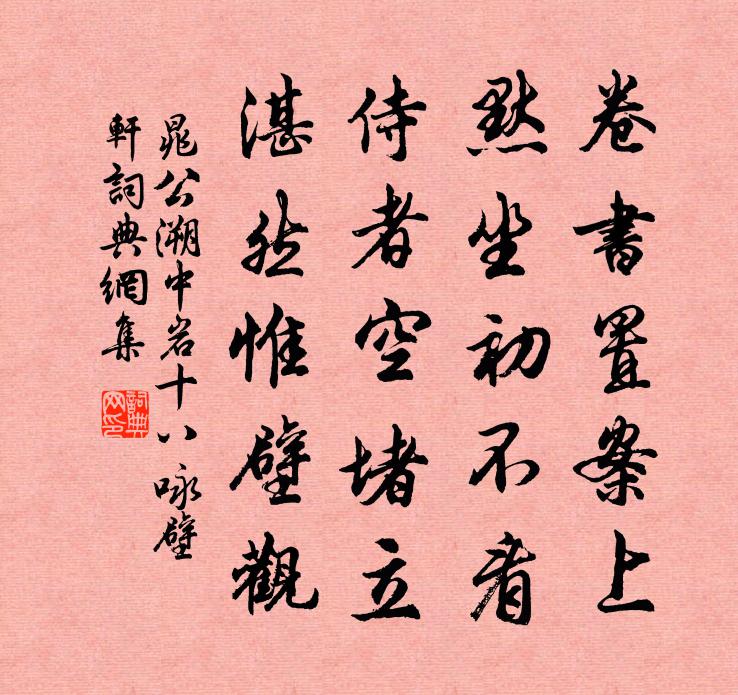 卷書置案上
默坐初不看
侍者空堵立
湛然惟壁觀
晁公溯中岩十八咏壁
軒詞典網集
詞典
网印